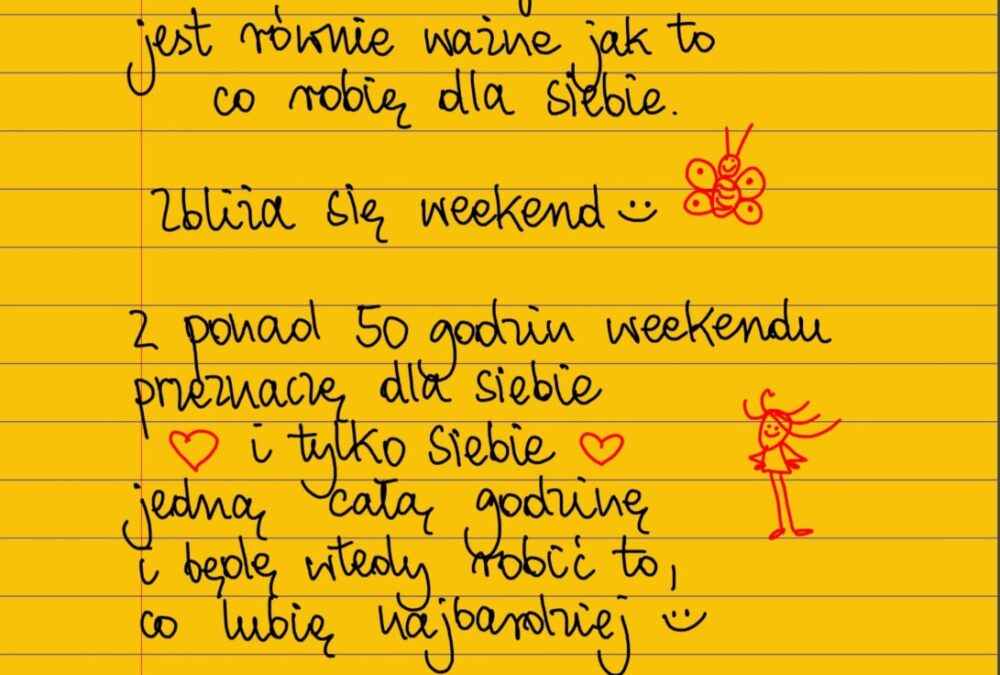 jest równie ważne jak to
co robię dla siebie.
Zbliża się weekend
Z ponad 50 godzin weekendu
przeznaczę dla siebie
i tylko siebie
jedną całą godzinę
i będę wtedy robić to,
co lubię najbardziej